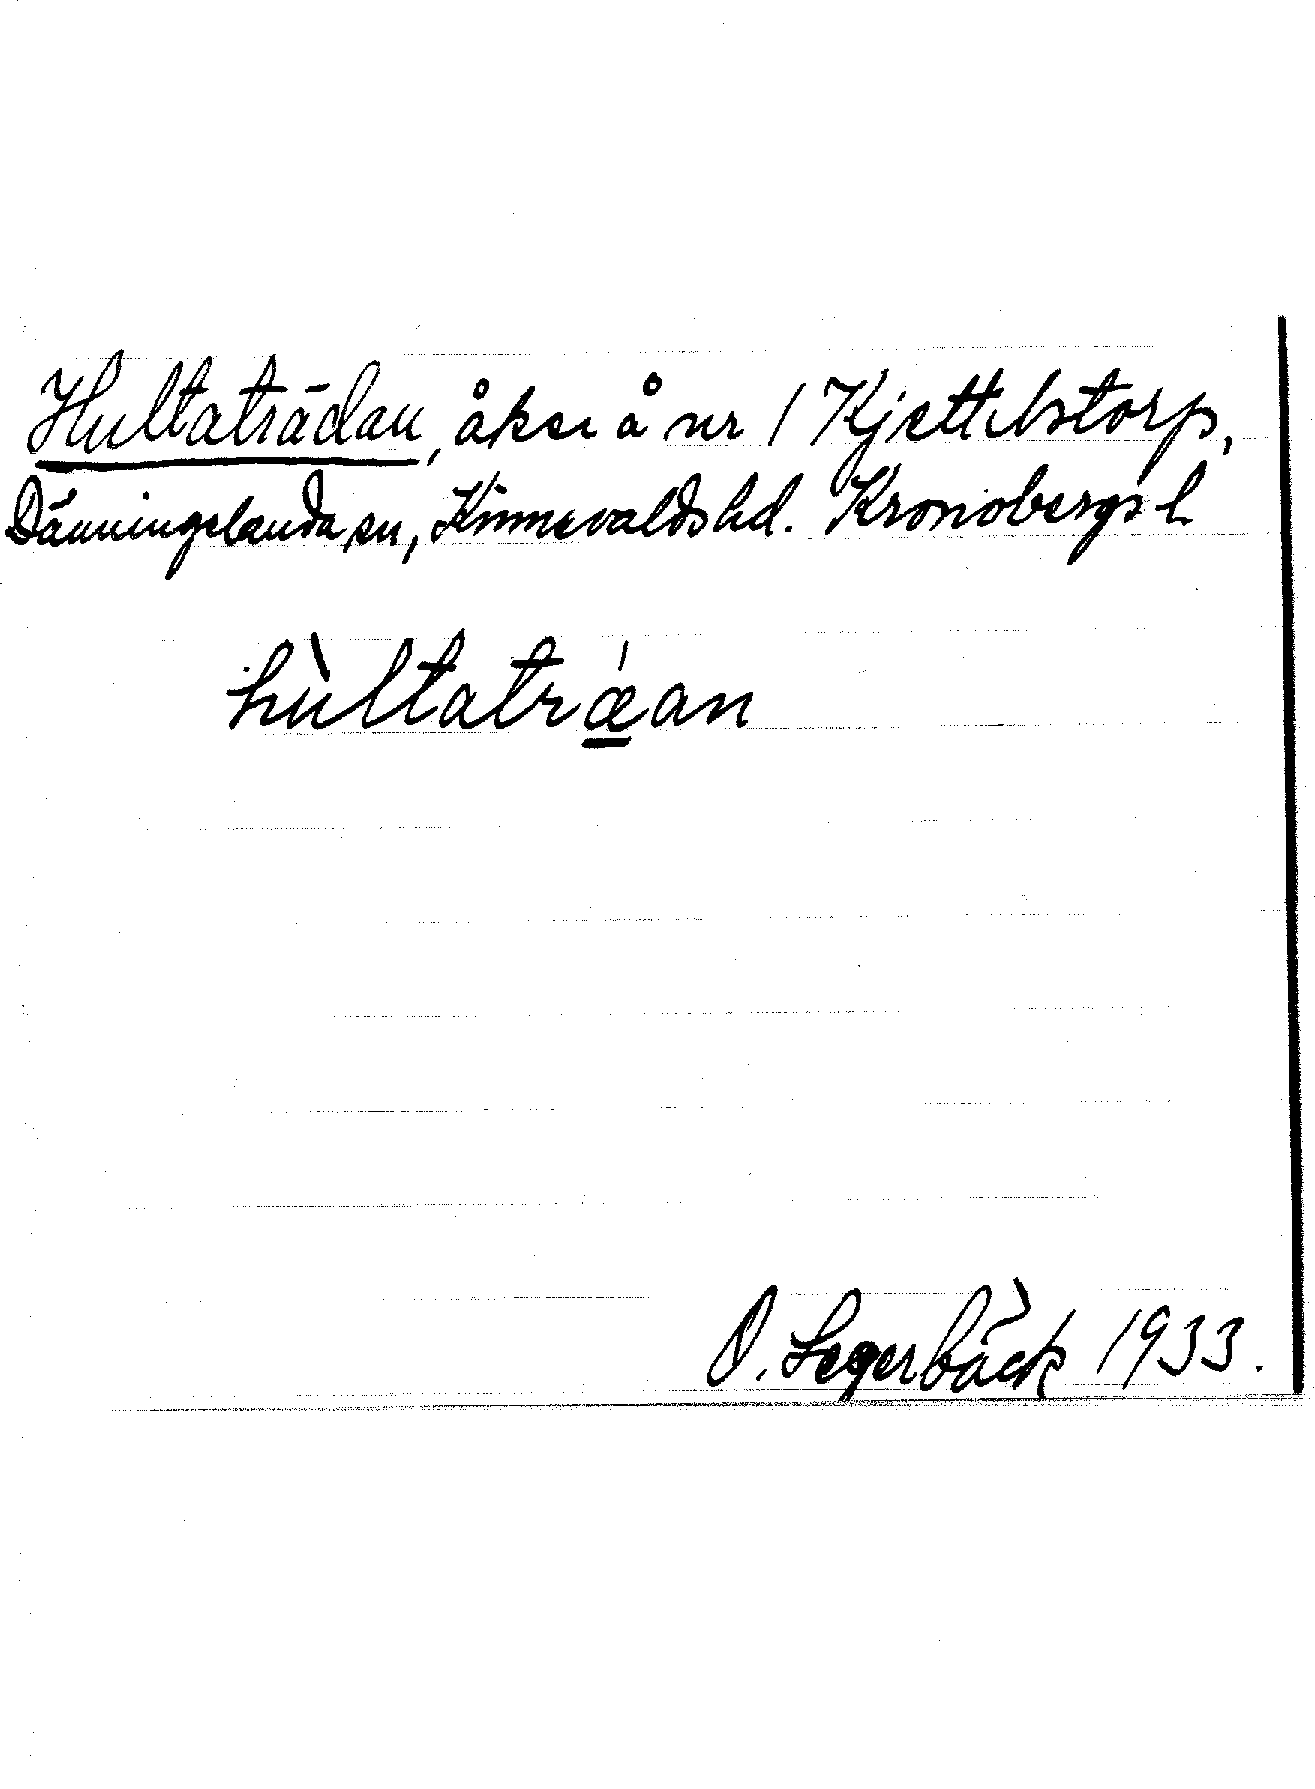 Hultaträdan, åker å nr 1 Kjettilstorp,
Dänningelanda sn, Kinnevalds hd. Kronobergs l.
hùltatrǽan
O. Segerbäck 1933.